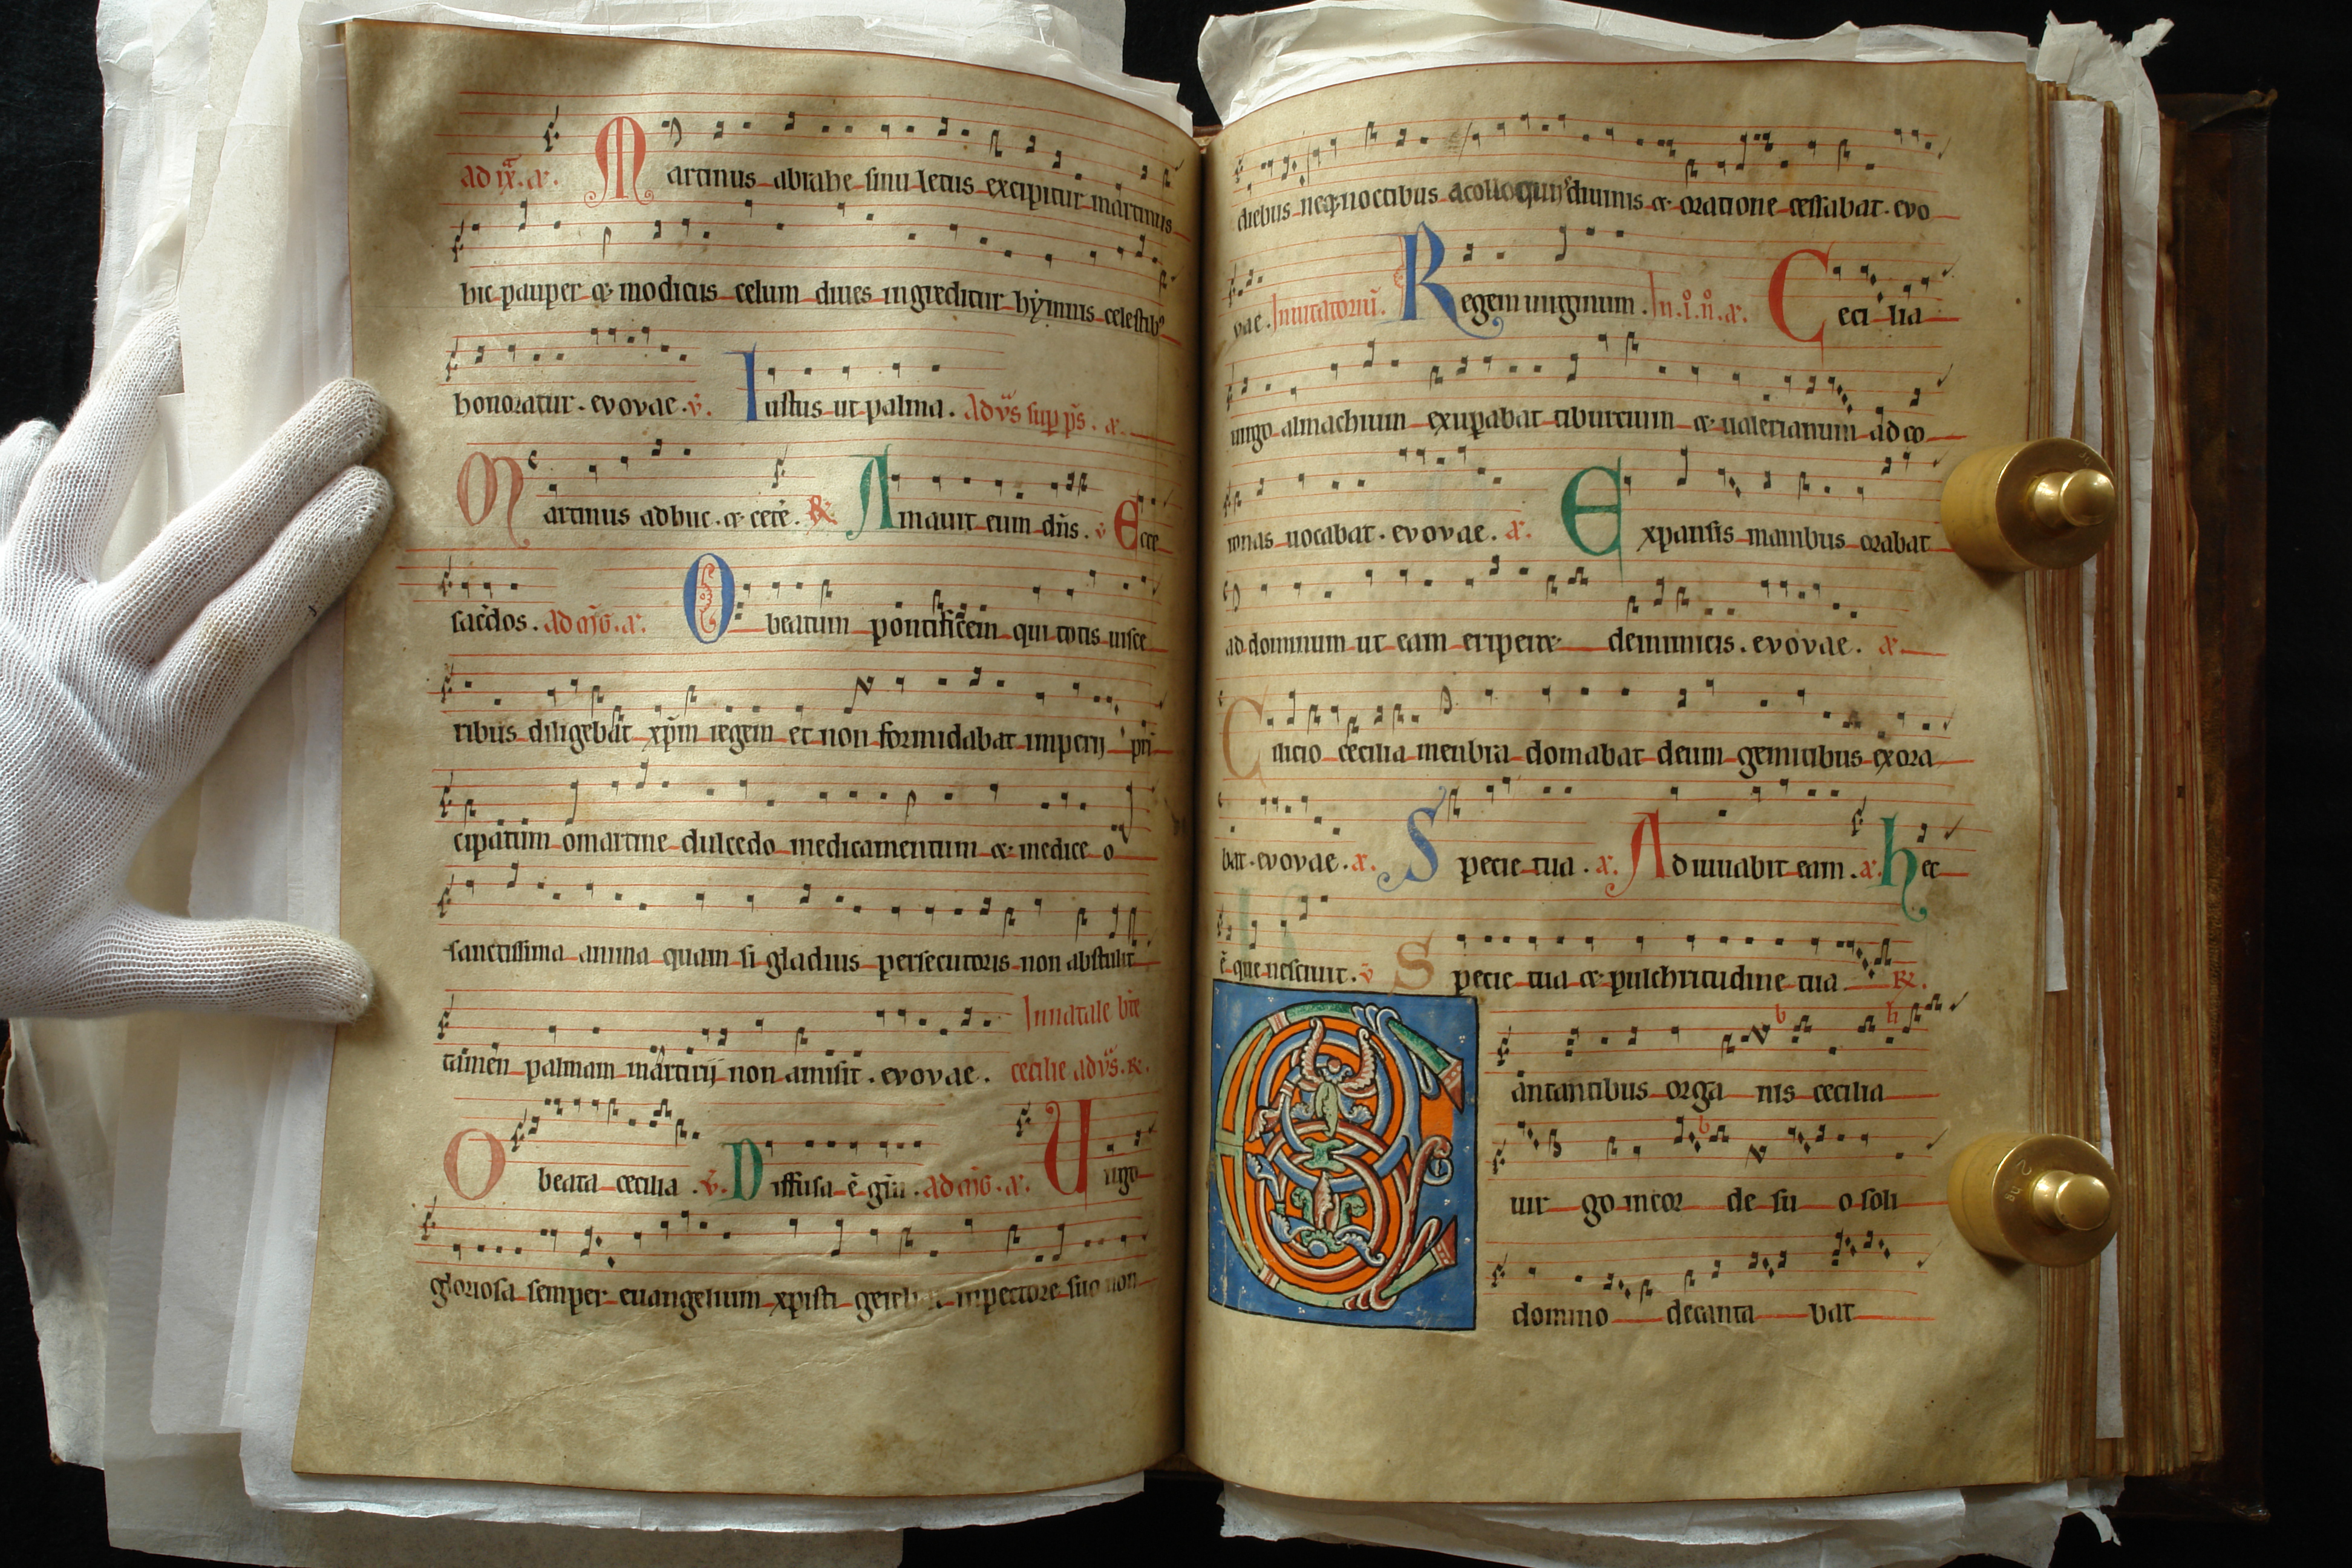 ad ix. a. Martinus abrahe sinu letus excipitur martinus
hic pauper & modicus celum diues ingreditur hẏmnis celestibꝰ
honoratur. evovae. v̄. Iustus ut palma. Ad vs̄ sup ps̄. a.
Martinus adhuc. & cetē. R̷ Amauit eum dn̄s. v̄ Ecce
sac̄dos. ad m̄g. a. O beatum pontificem qui totis uisce
ribus diligebat xp̄m regem et non formidabat imperij prī
cipatum o martine dulcedo medicamentum & medice o
sanctissima anima quam si gladius persecutoris non abstulit
tamen palmam martirij non amisit. evovae. In natale bt̄e
cecilie ad vs̄. R̷.
O beata cecilia. v̄. Diffusa ē gr̄a. ad m̄g. a. Uirgo
gloriosa semper euangelium xpisti in pectore suo non
diebus neqꝫ noctibus a colloquijs diuinis & oratione cessabat. evo
vae. Inuitatoriū. Regem uirginum. In. i. n̊. a. Cecilia
uirgo almachium exuꝑabat tiburcium & ualerianum ad co
ronas uocabat. evovae. a. Expansis manibus orabat
ad dominum ut eam eriperet de inimicis. evovae. a.
Cilicio cecilia menbra domabat deum gemitibus exora
bat. evovae. a. Specie tua. a. Adiuuabit eam. a. hec
ē que nesciuit. v̄ Specie tua & pulchritudine tua R̷.
Cantantibus orga nis cecilia
uir go in cor de su o soli
domino decanta bat